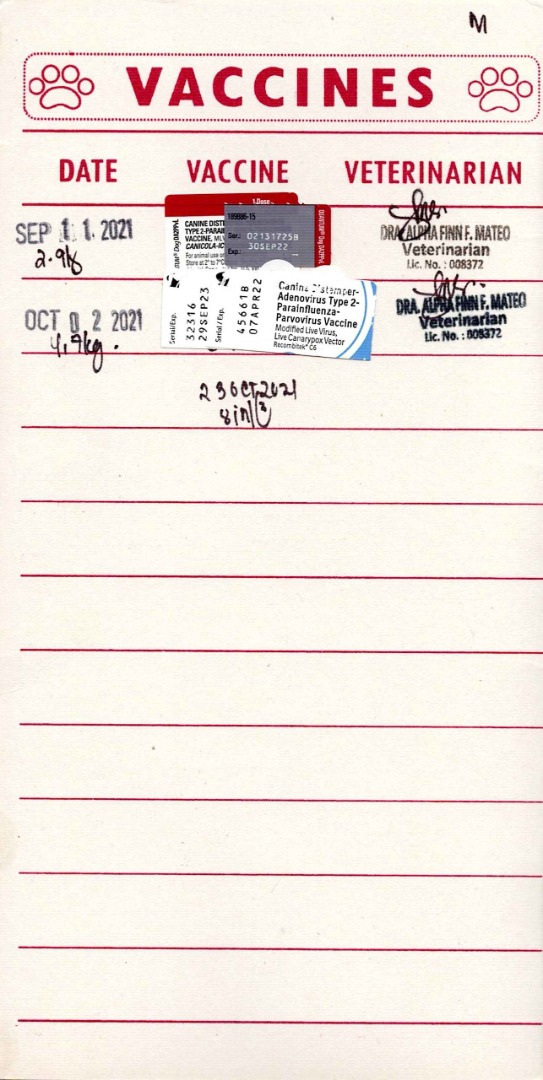 M
VACCINES
DATE VACCINE VETERINARIAN
SEP 11. 2021
2.9kg
1 Dose
189986-15
Ser.: 02131725B
Exp.: 30SEP22
CANINE DIST
TYPE 2-PARAI
VACCINE,
CANICOLA-IC
For animal use on
Store at 2° to 7°C
DRA. ALPHA FINN F. MATEO
Veterinarian
Lic. No. : 008372
OCT 02 2021
4.7kg.
Serial/Exp.
32316
29SEP23
Serial / Exp.
45661B
07APR22
Canine Distemper-
Adenovirus Type 2-
Parainfluenza-
Parvovirus Vaccine
Modified Live Virus,
Live Canarypox Vector
Recombitek® C6
DRA. ALPHA FINN F. MATEO
Veterinarian
Lic. No. : 008372
23 OCT 2021
8in1